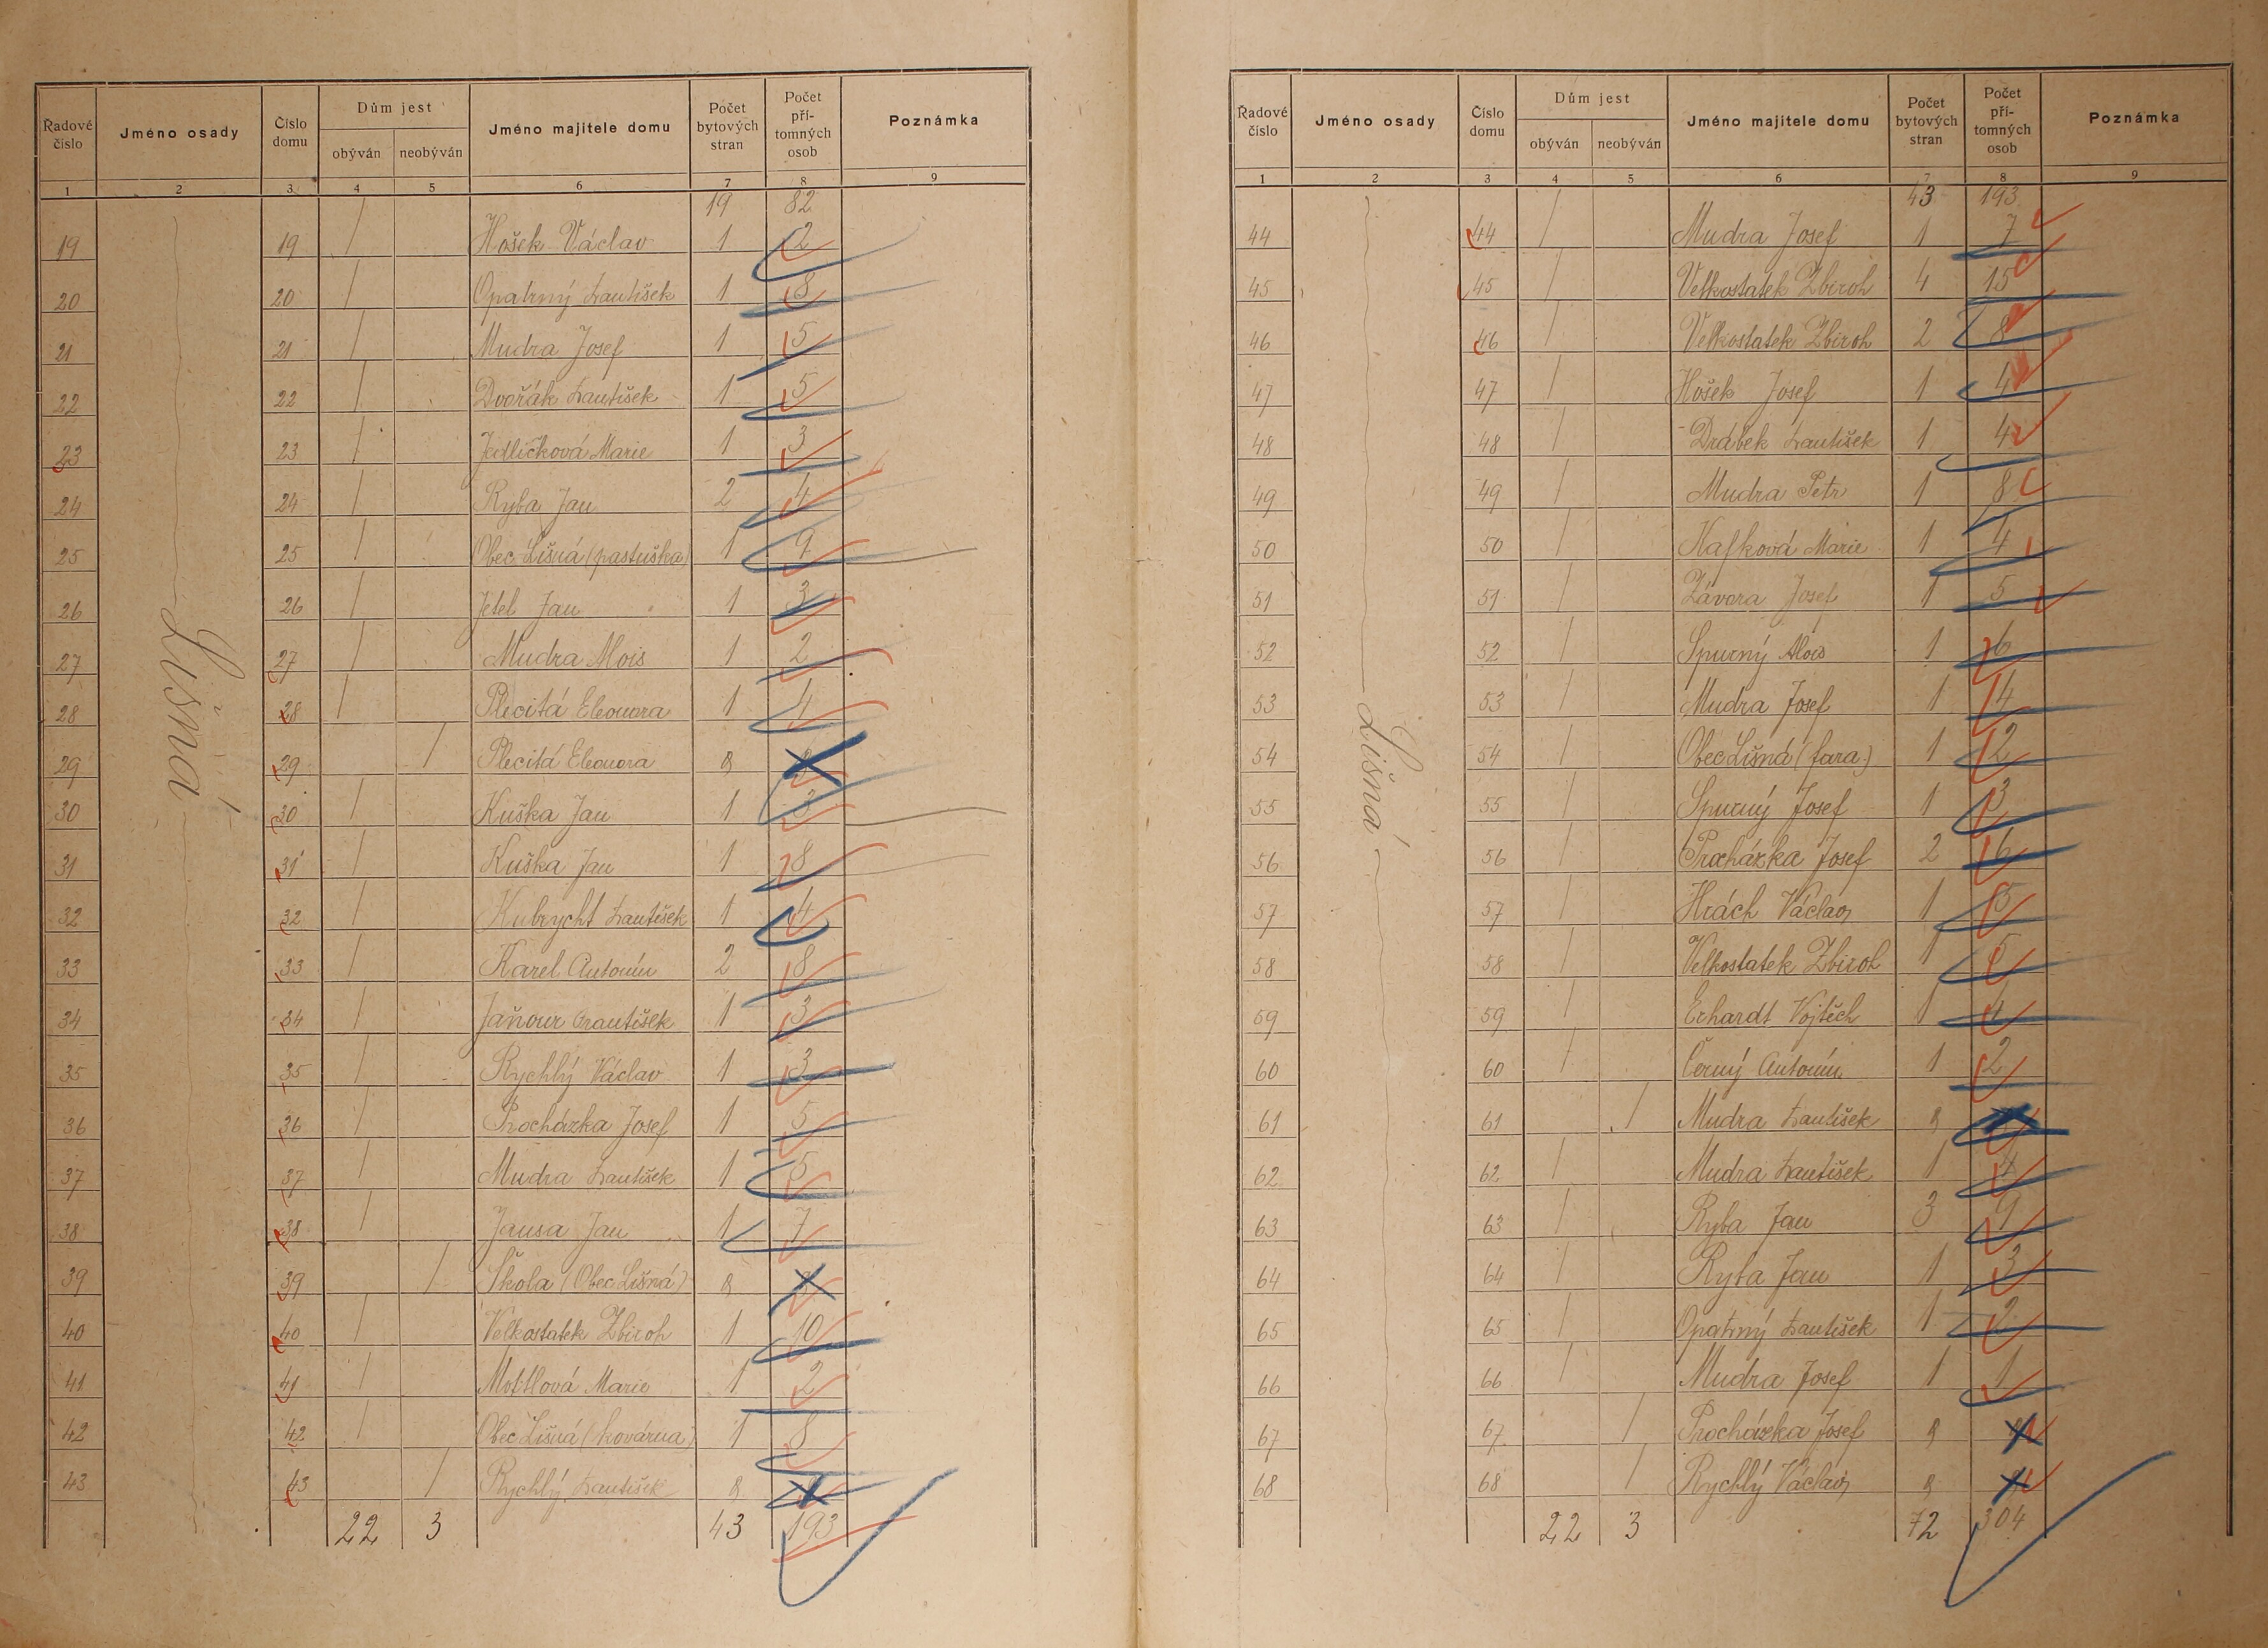 Řadové číslo | Jméno osady | Číslo domu | Dům jest obýván | neobýván | Jméno majitele domu | Počet bytových stran | Počet pří-tomných osob | Poznámka
1 2 3 4 5 6 7 8 9
19 82
Lišná
19 19 / Hošek Václav 1 2
20 20 / Opatrný František 1 8
21 21 / Mudra Josef 1 5
22 22 / Dvořák František 1 5
23 23 / Jedličková Marie 1 3
24 24 / Ryba Jan 2 4
25 25 / Obec Lišná (pastuška) 1 9
26 26 / Jetel Jan 1 3
27 27 / Mudra Alois 1 2
28 28 / Plecitá Eleonora 1 4
29 29 / Plecitá Eleonora
30 30 / Kuška Jan 1 3
31 31 / Kuška Jan 1 8
32 32 / Kubrycht František 1 4
33 33 / Karel Antonín 2 8
34 34 / Jaňour František 1 3
35 35 / Rychlý Václav 1 3
36 36 / Procházka Josef 1 5
37 37 / Mudra František 1 5
38 38 / Jansa Jan 1 7
39 39 / Škola (Obec Lišná)
40 40 / Velkostatek Zbiroh 1 10
41 41 / Mottlová Marie 1 2
42 42 / Obec Lišná (kovárna) 1 8
43 43 / Rychlý František
22 3 43 193
Řadové číslo | Jméno osady | Číslo domu | Dům jest obýván | neobýván | Jméno majitele domu | Počet bytových stran | Počet pří-tomných osob | Poznámka
1 2 3 4 5 6 7 8 9
43 193
Lišná
44 44 / Mudra Josef 1 7
45 45 / Velkostatek Zbiroh 4 15
46 46 / Velkostatek Zbiroh 2 8
47 47 / Hošek Josef 1 4
48 48 / Drábek František 1 4
49 49 / Mudra Petr 1 8
50 50 / Kafková Marie 1 4
51 51 / Závora Josef 1 5
52 52 / Spurný Alois 1 6
53 53 / Mudra Josef 1 4
54 54 / Obec Lišná (fara) 1 2
55 55 / Spurný Josef 1 3
56 56 / Procházka Josef 2 6
57 57 / Hrách Václav 1 5
58 58 / Velkostatek Zbiroh 1 5
59 59 / Erhardt Vojtěch 1 4
60 60 / Černý Antonín 1 2
61 61 / Mudra František
62 62 / Mudra František 1 4
63 63 / Ryba Jan 3 9
64 64 / Ryba Jan 1 3
65 65 / Opatrný František 1 2
66 66 / Mudra Josef 1 1
67 67 / Procházka Josef
68 68 / Rychlý Václav
22 3 72 304